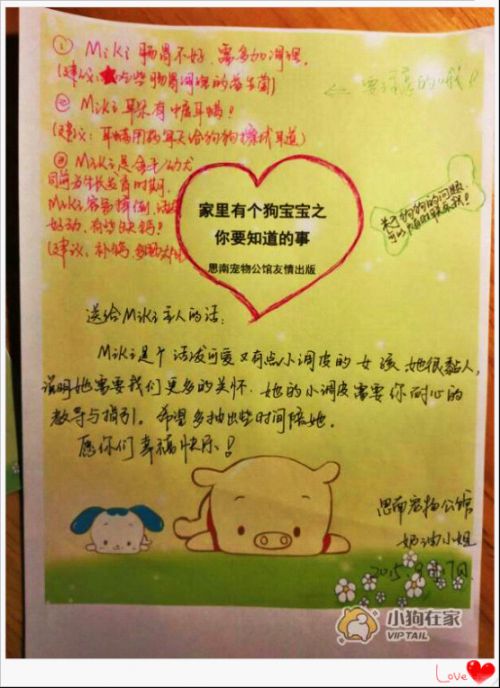 ① Miki 肠胃不好,需多加调理.
(建议:吃些肠胃调理的益生菌)
② Miki 耳朵有中度耳螨!
(建议:耳螨用药每天给狗狗擦拭耳道)
③ Miki是金毛幼犬
目前为生长发育时期.
Miki容易摔倒,活泼
好动,有些缺钙!
(建议:补钙,
← 要注意的哦!
关于狗狗的问题
可以随时联系我!
家里有个狗宝宝之
你要知道的事
思南宠物公馆友情出版
送给Miki主人的话:
Miki是个活泼可爱又有点小调皮的女孩,她很黏人,
说明她需要我们更多的关怀.她的小调皮需要你耐心的
教导与指引。希望多抽出些时间陪她.
愿你们幸福快乐!
思南宠物公馆
奶油小姐
小狗在家
VIP TAIL
Love